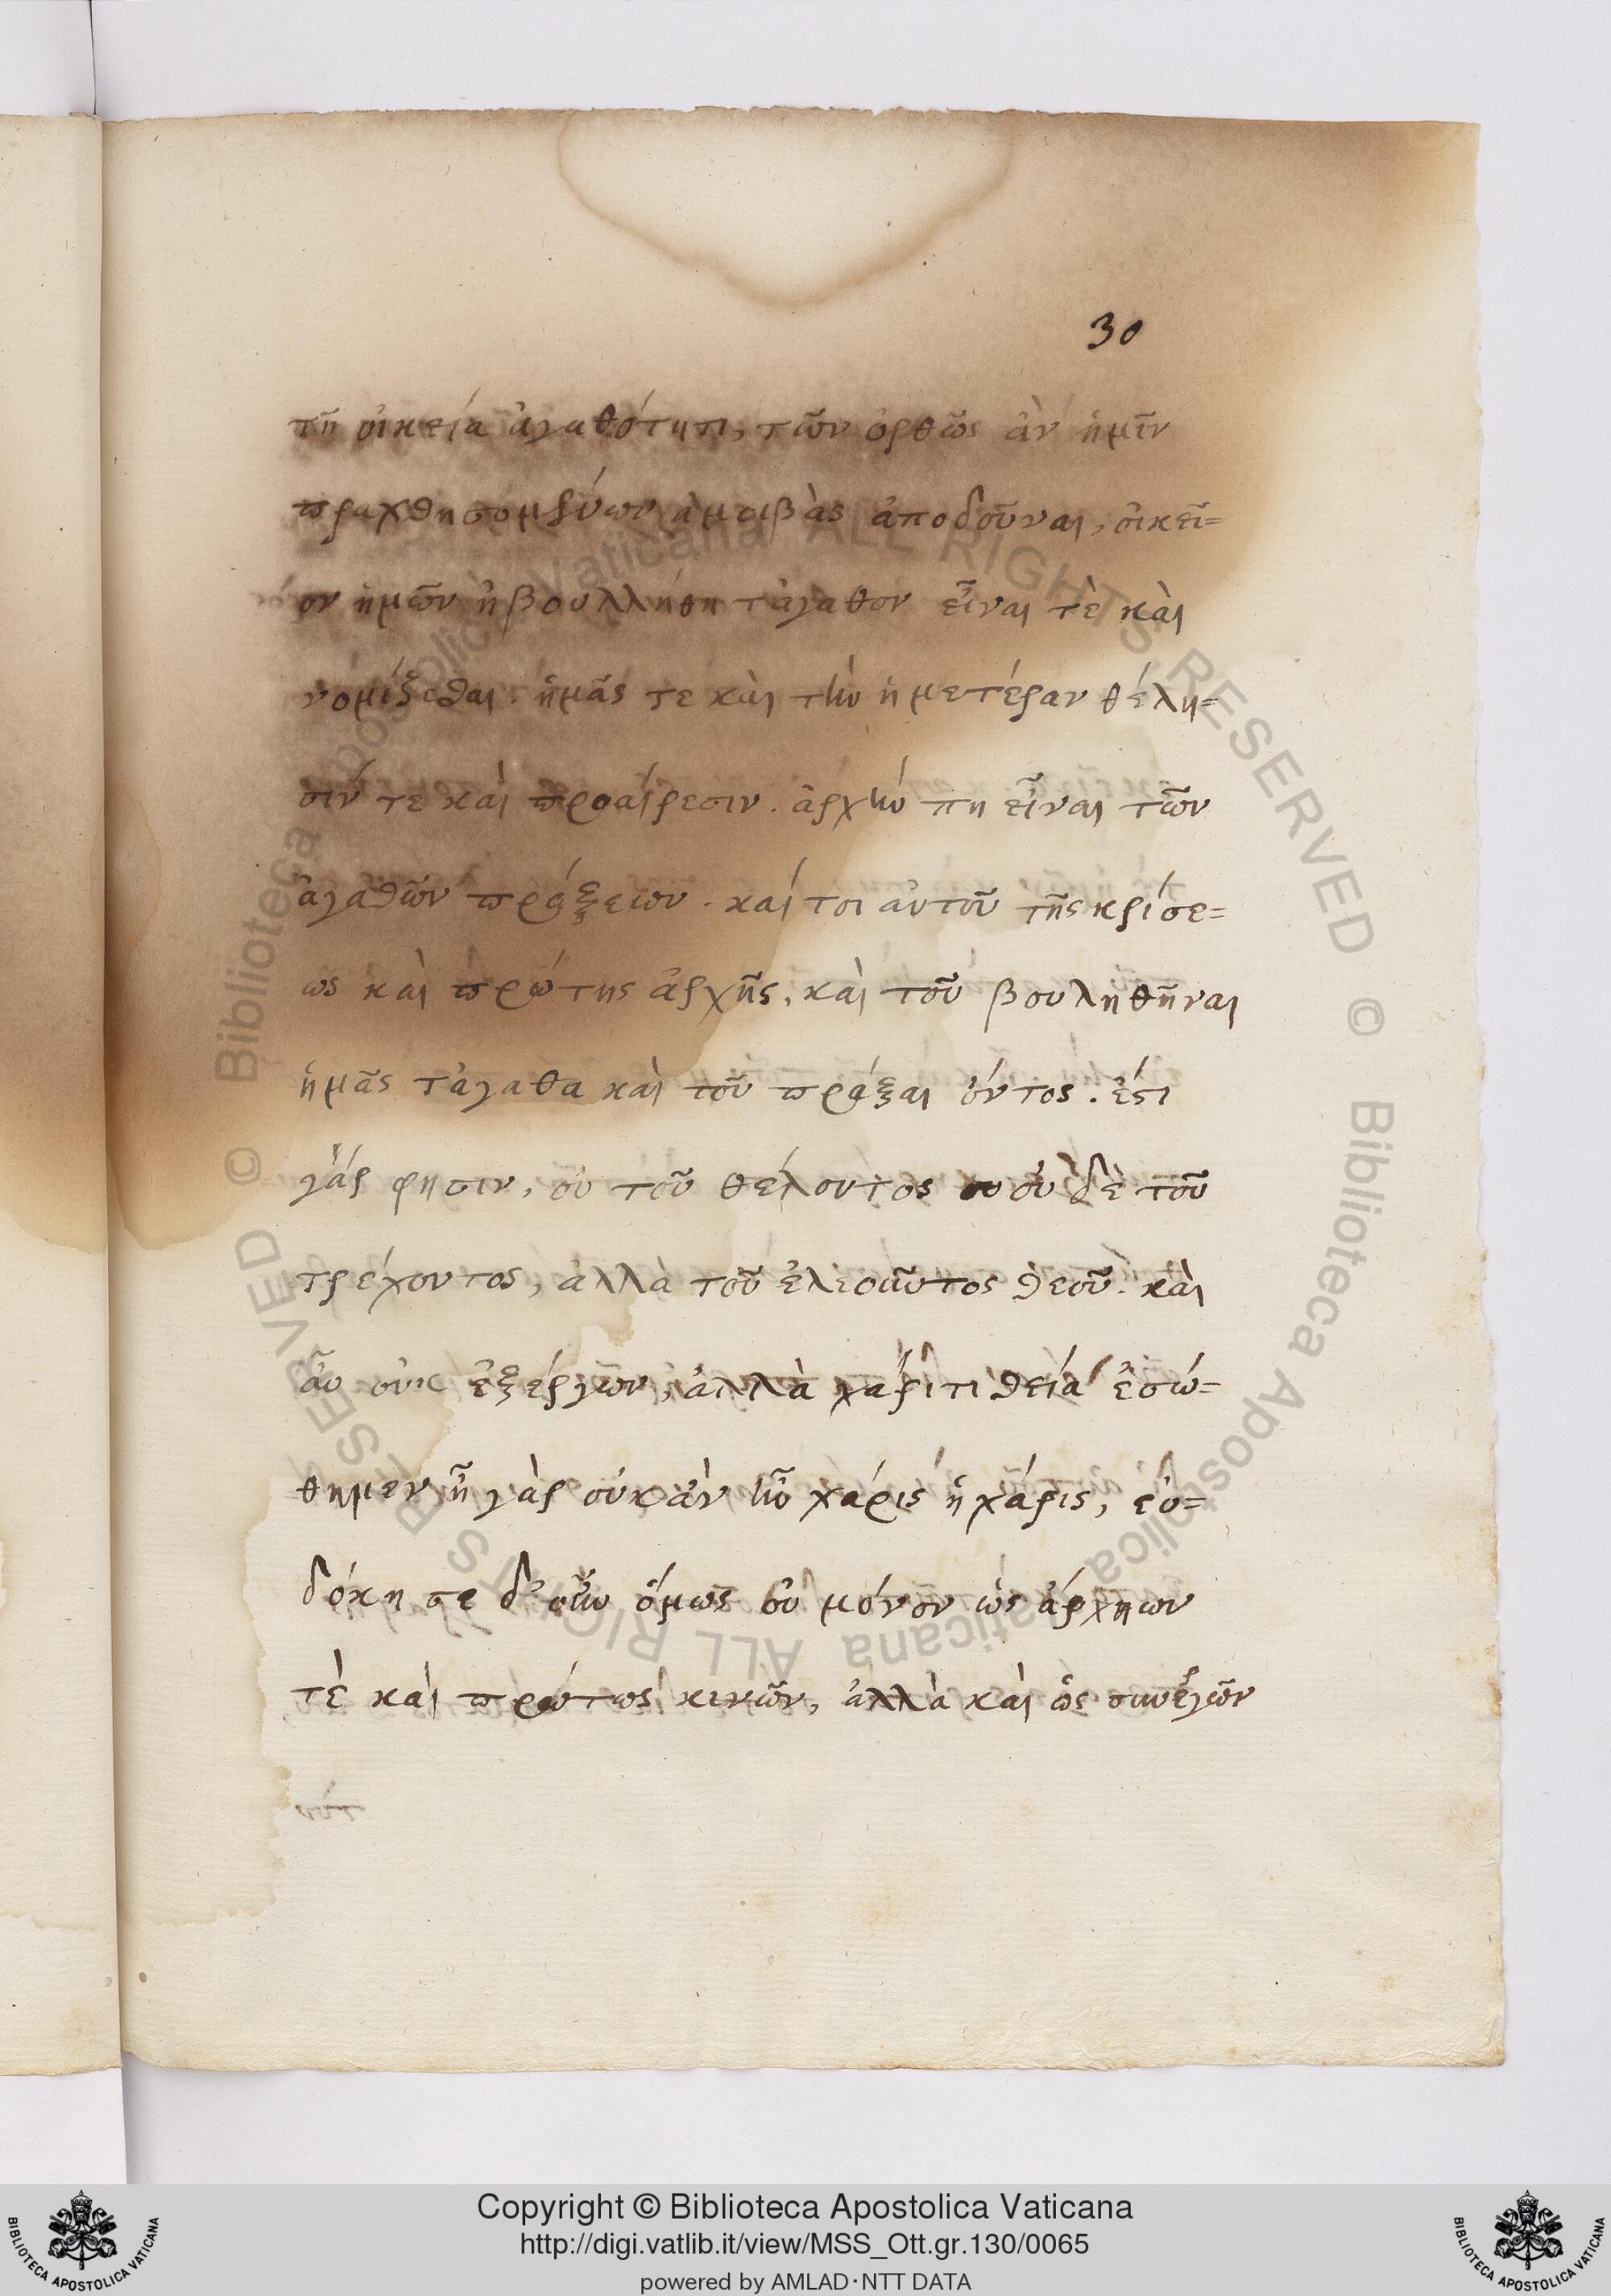 30
τῆ οἰκεία ἀγαθότητι, τῶν ὀρθῶς ἀν ἡμῖν
πραχθησομένων ἀμοιβὰς ἀποδοῦναι, οἰκεῖ=
ον ἡμῶν ἠβουλλήθη τἀγαθον εἶναι τὲ καὶ
νομίζεσθαι. ἡμᾶς τε καὶ τὴν ἡμετέραν θέλη=
σίν τε καὶ προαίρεσιν. ἀρχήν πη εἶναι τῶν
ἀγαθῶν πράξεων. καί τοι αὐτοῦ τῆς κρίσε=
ως καὶ πρώτης ἀρχῆς, καὶ τοῦ βουληθῆναι
ἡμᾶς τἀγαθα καὶ τοῦ πράξαι ὄντος. ἔστι
γάρ φησιν, οὐ τοῦ θέλοντος οὐδὲ τοῦ
τρέχοντος, ἀλλὰ τοῦ ἐλεοῦντος θεοῦ. καὶ
αὖ οὐκ ἐξέργων, ἀλλὰ χάριτι θεία ἐσώ=
θημεν ἦ γὰρ οὐκ ἀν ἦν χάρις ἡ χάρις, εὐ=
δόκησε δ' οὖν ὅμως οὐ μόνον ὡς ἄρχηων
τὲ καὶ πρώτως κινῶν, ἀλλὰ καὶ ὡς συνέργῶν
Copyright © Biblioteca Apostolica Vaticana
http://digi.vatlib.it/view/MSS_Ott.gr.130/0065
powered by AMLAD·NTT DATA
BIBLIOTECA APOSTOLICA VATICANA
BIBLIOTECA APOSTOLICA VATICANA
© Biblioteca Apostolica Vaticana ALL RIGHTS RESERVED © Biblioteca Apostolica Vaticana ALL RIGHTS RESERVED